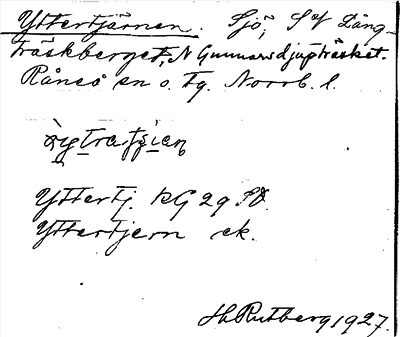 Yttertjärnen. Sjö, S of Lång-
träskberget, N Gunnarsdjupträsket.
Råneå sn o. tg. Norrb. l.
Yttertj. KG 29 SO.
Yttertjern ek.
H. Rutberg 1927.